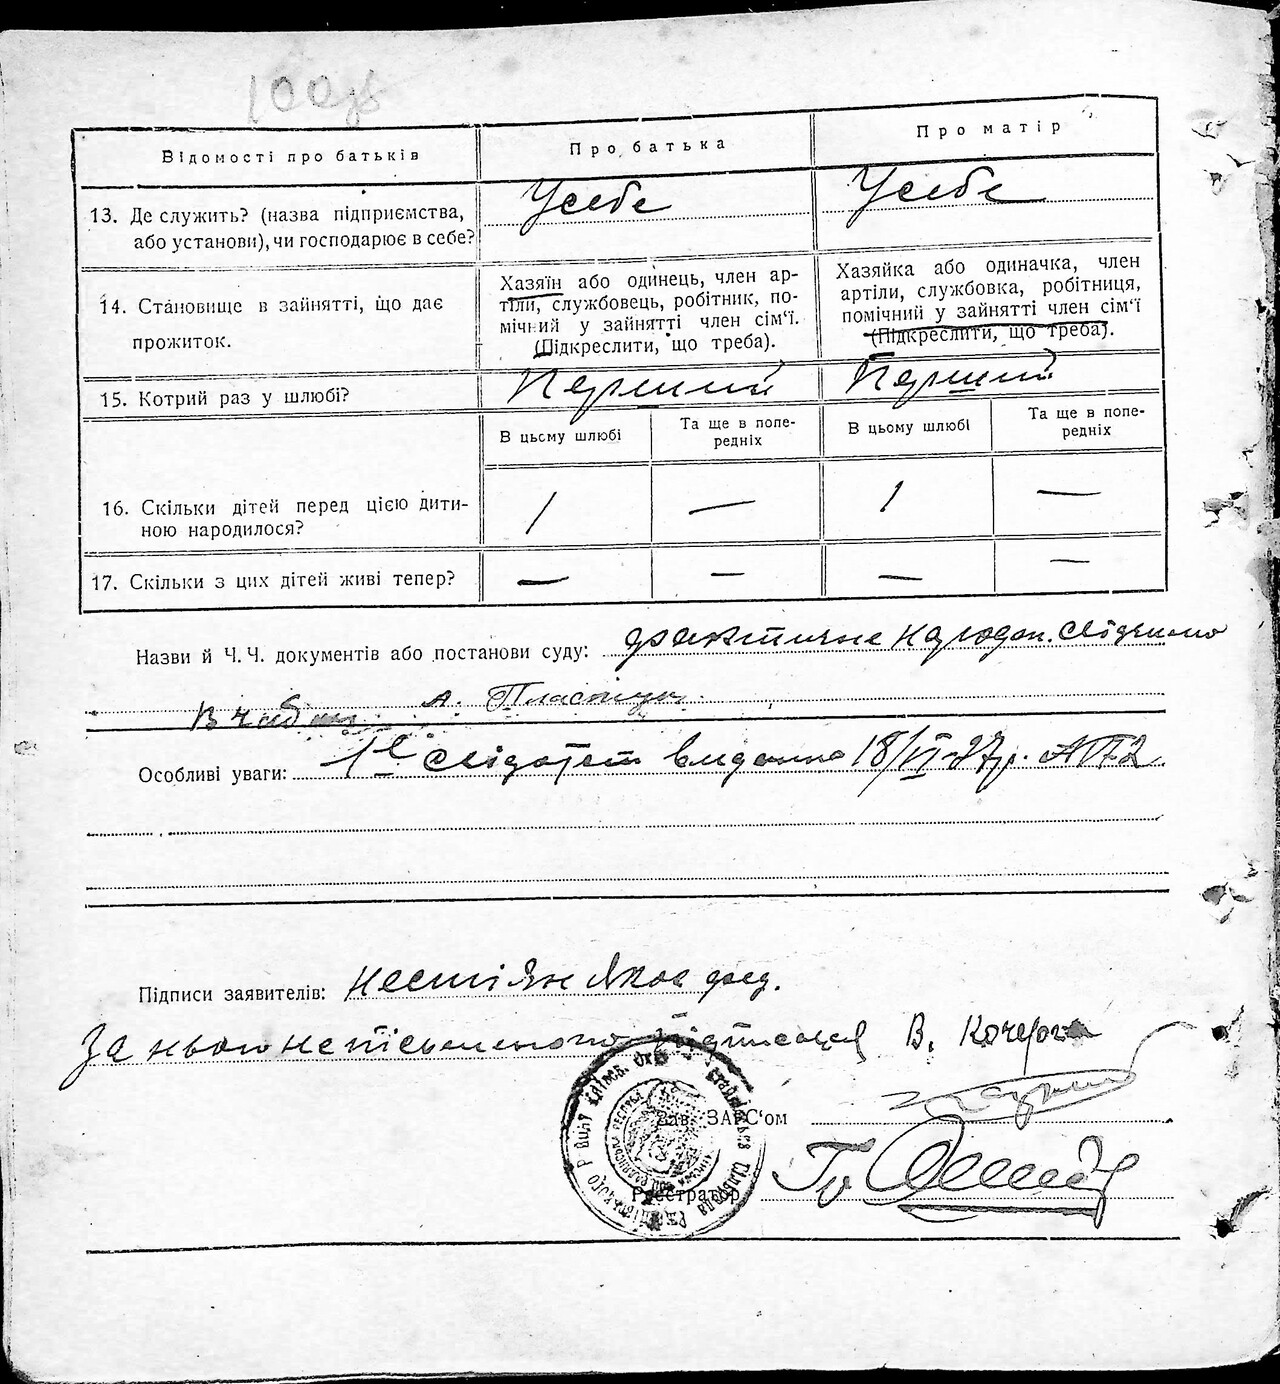 100зв
Відомості про батьків
Про батька
Про матір
13. Де служить? (назва підприємства,
або установи), чи господарює в себе?
Усебе
Усебе
14. Становище в зайнятті, що дає
прожиток.
Хазяїн або одинець, член ар-
тіли, службовець, робітник, по-
мічний у зайнятті член сім'ї.
(Підкреслити, що треба).
Хазяйка або одиначка, член
артіли, службовка, робітниця,
помічний у зайнятті член сім'ї
(Підкреслити, що треба).
15. Котрий раз у шлюбі?
Перший
Перший
В цьому шлюбі
Та ще в попе-
редніх
В цьому шлюбі
Та ще в попе-
редніх
16. Скільки дітей перед цією дити-
ною народилося?
1
—
1
—
17. Скільки з цих дітей живі тепер?
—
—
—
—
Назви й Ч. Ч. документів або постанови суду: фактичне народж.
Особливі уваги: видано 18/VI-27р.
Підписи заявителів:
За нього неписьменного підписався В. Кочерга
Зав. ЗАГС'ом
Реєстратор